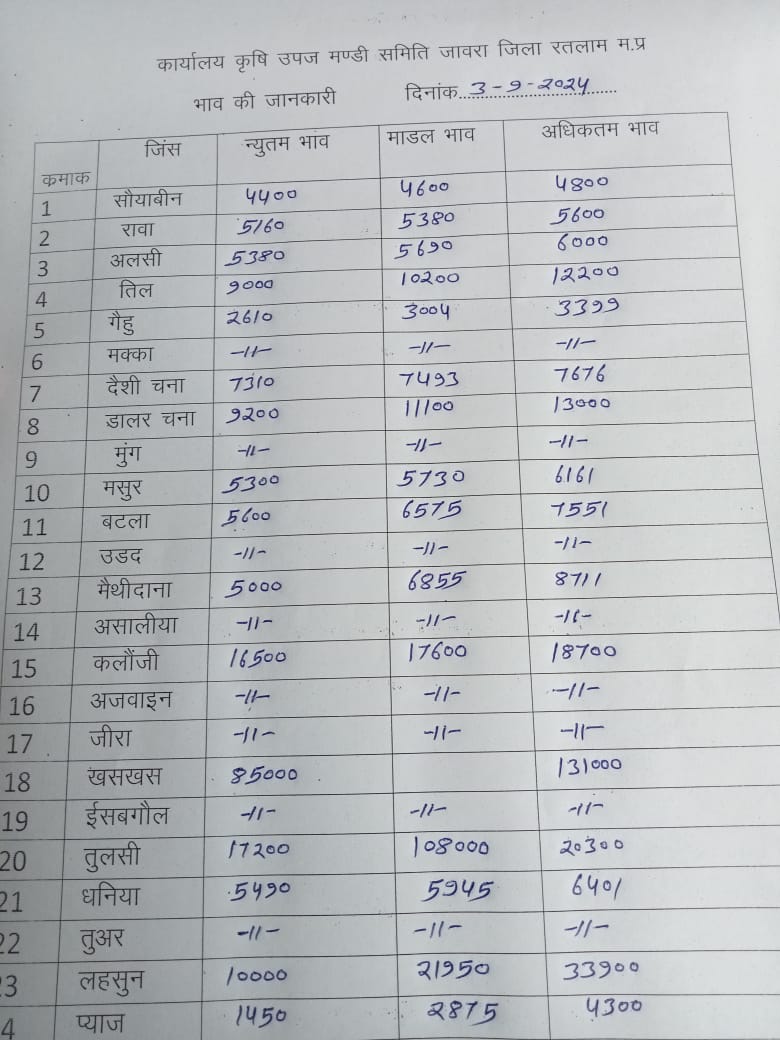 कार्यालय कृषि उपज मण्डी समिति जावरा जिला रतलाम म.प्र
भाव की जानकारी दिनांक 3-9-2024
कमाक जिंस न्युतम भाव माडल भाव अधिकतम भाव
1 सौयाबीन 4400 4600 4800
2 रावा 5160 5380 5600
3 अलसी 5380 5690 6000
4 तिल 9000 10200 12200
5 गैहु 2610 3004 3399
6 मक्का -11- -11- -11-
7 दैशी चना 7310 7493 7676
8 डालर चना 9200 11100 13000
9 मुंग -11- -11- -11-
10 मसुर 5300 5730 6161
11 बटला 5600 6575 7551
12 उडद -11- -11- -11-
13 मैथीदाना 5000 6855 8711
14 असालीया -11- -11- -11-
15 कलौंजी 16500 17600 18700
16 अजवाइन -11- -11- -11-
17 जीरा -11- -11- -11-
18 खसखस 85000 131000
19 ईसबगौल -11- -11- -11-
20 तुलसी 17200 108000 20300
21 धनिया 5490 5945 6401
22 तुअर -11- -11- -11-
3 लहसुन 10000 21950 33900
4 प्याज 1450 2875 4300